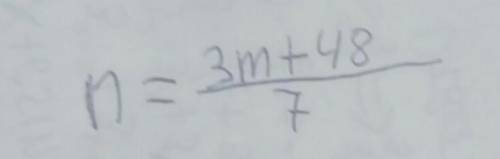 n = \frac{3m+48}{7}